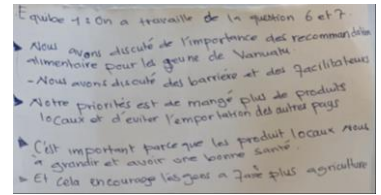 Equipe 1 : On a travaillé de la question 6 et 7.
Nous avons discuté de l'importance des recommandation
alimentaire pour les jeune de Vanuatu.
- Nous avons discuté des barrière et des facilitateurs
Notre priorités est de mangé plus de produits
locaux et d'eviter l'emportation des autres pays
C'est important parce que les produit locaux nous
à grandir et avoir une bonne santé.
Et cela encourage les gens a faire plus agriculture